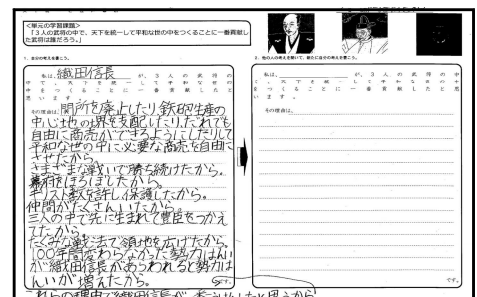 <単元の学習課題>
「３人の武将の中で、天下を統一して平和な世の中をつくることに一番貢献した武将は誰だろう。」
1．自分の考えを書こう。
私は、織田信長が、３人の武将の中で、天下を統一して平和な世の中をつくることに一番貢献したと思います。
その理由は、関所を廃止したり鉄砲生産の
中心地の堺を支配したり、だれでも
自由に商売ができるようにしたりして
平和な世の中に必要な商売を自由に
させたから。
さまざまな戦いで勝ち続けたから。
幕府をほろぼしたから。
キリスト教を許し保護したから。
仲間がたくさんいたから。
三人の中で先に生まれて豊臣をつかえ
てたから。
たくみな戦法で領地を広げたから。
100年間変わらなかった勢力はんい
が織田信長があらわれると勢力は
んいが増えたから。
です。
これらの理由で織田信長が
と思うから
2．他の人の考えを聞いて、新たに自分の考えを書こう。
私は、が、３人の武将の中で、天下を統一して平和な世の中をつくることに一番貢献したと思います。
その理由は、
です。